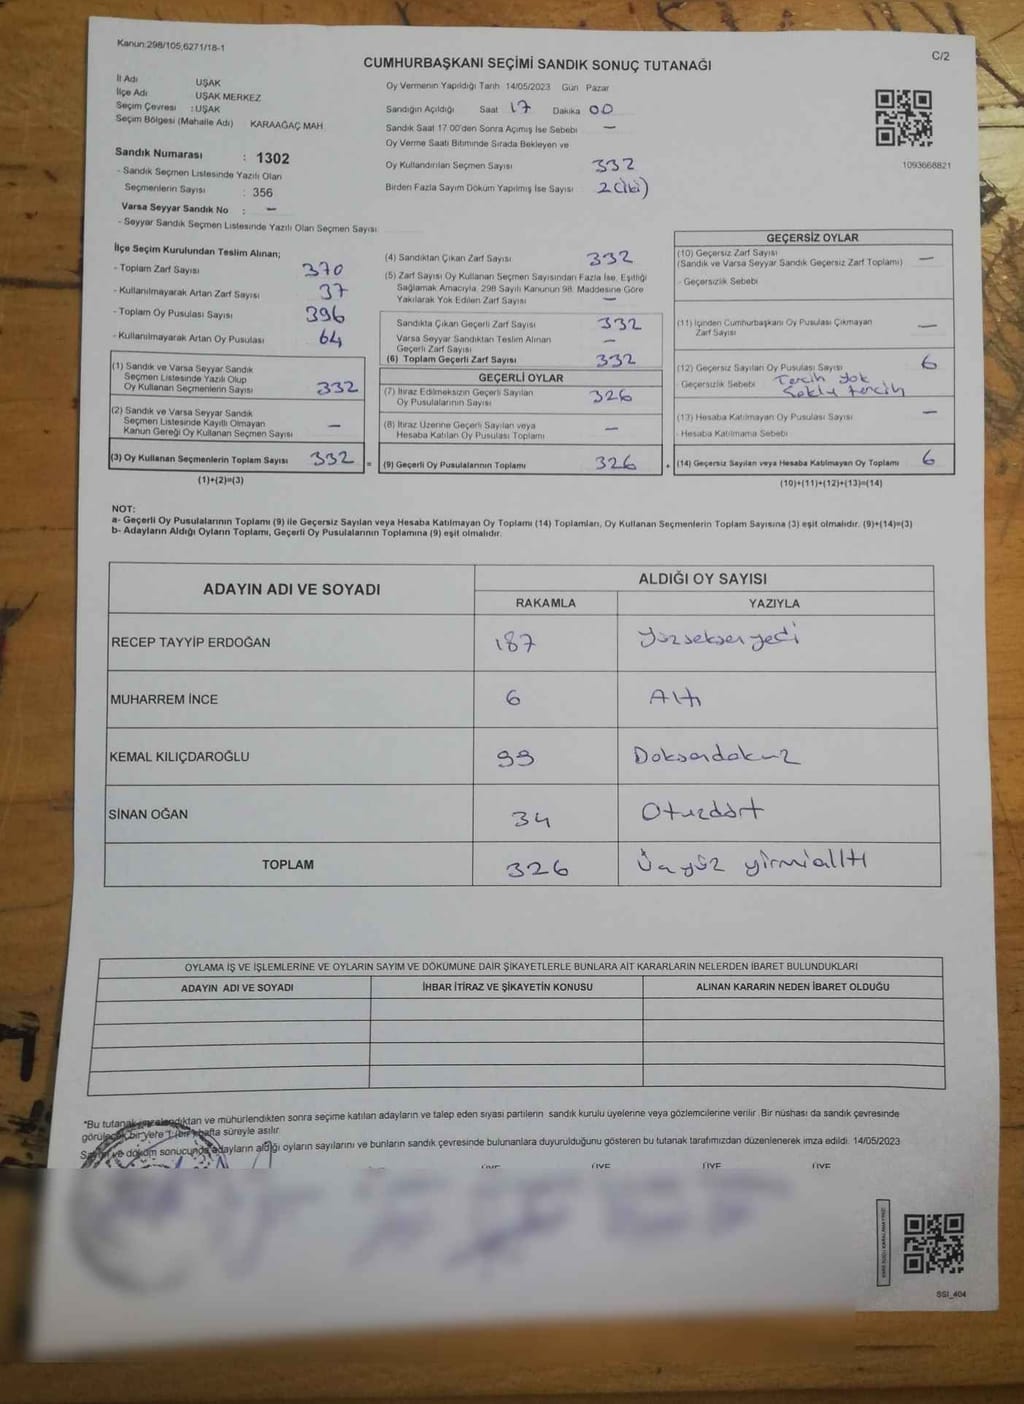 Kanun:298/105,6271/18-1
C/2
CUMHURBAŞKANI SEÇİMİ SANDIK SONUÇ TUTANAĞI
İl Adı UŞAK
İlçe Adı UŞAK MERKEZ
Seçim Çevresi : UŞAK
Seçim Bölgesi (Mahalle Adı) KARAAĞAÇ MAH.
Sandık Numarası : 1302
- Sandık Seçmen Listesinde Yazılı Olan
Seçmenlerin Sayısı : 356
Varsa Seyyar Sandık No : -
- Seyyar Sandık Seçmen Listesinde Yazılı Olan Seçmen Sayısı
Oy Vermenin Yapıldığı Tarih 14/05/2023 Gün Pazar
Sandığın Açıldığı Saat 17 Dakika 00
Sandık Saat 17.00'den Sonra Açılmış İse Sebebi -
Oy Verme Saati Bitiminde Sırada Bekleyen ve
Oy Kullandırılan Seçmen Sayısı 332
Birden Fazla Sayım Döküm Yapılmış İse Sayısı 2(iki)
1093668821
İlçe Seçim Kurulundan Teslim Alınan;
- Toplam Zarf Sayısı 370
- Kullanılmayarak Artan Zarf Sayısı 37
- Toplam Oy Pusulası Sayısı 396
- Kullanılmayarak Artan Oy Pusulası 64
(1) Sandık ve Varsa Seyyar Sandık
Seçmen Listesinde Yazılı Olup
Oy Kullanan Seçmenlerin Sayısı 332
(2) Sandık ve Varsa Seyyar Sandık
Seçmen Listesinde Kayıtlı Olmayan
Kanun Gereği Oy Kullanan Seçmen Sayısı -
(3) Oy Kullanan Seçmenlerin Toplam Sayısı 332 =
(1)+(2)=(3)
(4) Sandıktan Çıkan Zarf Sayısı 332
(5) Zarf Sayısı Oy Kullanan Seçmen Sayısından Fazla İse, Eşitliği
Sağlamak Amacıyla, 298 Sayılı Kanunun 98. Maddesine Göre
Yakılarak Yok Edilen Zarf Sayısı -
Sandıkta Çıkan Geçerli Zarf Sayısı 332
Varsa Seyyar Sandıktan Teslim Alınan
Geçerli Zarf Sayısı -
(6) Toplam Geçerli Zarf Sayısı 332
GEÇERLİ OYLAR
(7) İtiraz Edilmeksizin Geçerli Sayılan
Oy Pusulalarının Sayısı 326
(8) İtiraz Üzerine Geçerli Sayılan veya
Hesaba Katılan Oy Pusulası Toplamı -
(9) Geçerli Oy Pusulalarının Toplamı 326 +
GEÇERSİZ OYLAR
(10) Geçersiz Zarf Sayısı
(Sandık ve Varsa Seyyar Sandık Geçersiz Zarf Toplamı) -
- Geçersizlik Sebebi
(11) İçinden Cumhurbaşkanı Oy Pusulası Çıkmayan
Zarf Sayısı -
(12) Geçersiz Sayılan Oy Pusulası Sayısı 6
- Geçersizlik Sebebi Tercih yok
tercih
(13) Hesaba Katılmayan Oy Pusulası Sayısı -
- Hesaba Katılmama Sebebi
(14) Geçersiz Sayılan veya Hesaba Katılmayan Oy Toplamı 6
(10)+(11)+(12)+(13)=(14)
NOT:
a- Geçerli Oy Pusulalarının Toplamı (9) ile Geçersiz Sayılan veya Hesaba Katılmayan Oy Toplamı (14) Toplamları, Oy Kullanan Seçmenlerin Toplam Sayısına (3) eşit olmalıdır. (9)+(14)=(3)
b- Adayların Aldığı Oyların Toplamı, Geçerli Oy Pusulalarının Toplamına (9) eşit olmalıdır.
ADAYIN ADI VE SOYADI ALDIĞI OY SAYISI
RAKAMLA YAZIYLA
RECEP TAYYİP ERDOĞAN 187 Yüzseksenyedi
MUHARREM İNCE 6 Altı
KEMAL KILIÇDAROĞLU 99 Doksandokuz
SİNAN OĞAN 34 Otuzdört
TOPLAM 326 Üçyüz yirmialltı
OYLAMA İŞ VE İŞLEMLERİNE VE OYLARIN SAYIM VE DÖKÜMÜNE DAİR ŞİKAYETLERLE BUNLARA AİT KARARLARIN NELERDEN İBARET BULUNDUKLARI
ADAYIN ADI VE SOYADI İHBAR İTİRAZ VE ŞİKAYETİN KONUSU ALINAN KARARIN NEDEN İBARET OLDUĞU
*Bu tutanak imzalandıktan ve mühürlendikten sonra seçime katılan adayların ve talep eden siyasi partilerin sandık kurulu üyelerine veya gözlemcilerine verilir. Bir nüshası da sandık çevresinde
görülecek bir yere 1 (bir) hafta süreyle asılır.
Sayım ve döküm sonucunda adayların aldığı oyların sayılarını ve bunların sandık çevresinde bulunanlara duyurulduğunu gösteren bu tutanak tarafımızdan düzenlenerek imza edildi. 14/05/2023
ÜYE ÜYE ÜYE ÜYE
SSI_404